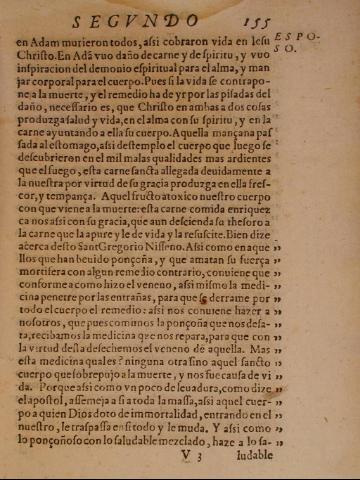 SEGVNDO 155
ESPO-
SO.
en Adam murieron todos, assi cobraron vida en Iesu
Christo. En Adã vuo daño de carne y de spiritu, y vuo
inspiracion del demonio espiritual para el alma, y man
jar corporal para el cuerpo. Pues si la vida se contrapo-
ne a la muerte, y el remedio ha de yr por las pisadas del
daño, necessario es, que Christo en ambas a dos cosas
produzga salud y vida, en el alma con su spiritu, y en la
carne ayuntando a ella su cuerpo. Aquella mançana pas
sada al estomago, assi destemplo el cuerpo que luego se
descubrieron en el mil malas qualidades mas ardientes
que el fuego, esta carne sancta allegada deuidamente a
la nuestra por virtud de su gracia produzga en ella fres-
cor, y tempança. Aquel fructo atoxico nuestro cuerpo
con que viene a la muerte: esta carne comida enriquez
ca nos assi con su gracia, que aun descienda su thesoro a
la carne que la apure y le de vida y la resuscite. Bien dize
acerca desto Sant Gregorio Nisseno. Assi como en aque „
llos que han beuido ponçoña, y que amatan su fuerça „
mortifera con algun remedio contrario, conuiene que „
conforme a como hizo el veneno, assi mismo la medi- „
cina penetre por las entrañas, para que se derrame por „
todo el cuerpo el remedio: assi nos conuiene hazer a „
nosotros, que pues comimos la ponçoña que nos desa- „
ta, recibamos la medicina que nos repara, para que con „
la virtud desta desechemos el veneno de aquella. Mas „
esta medicina qual es? ninguna otra sino aquel sancto „
cuerpo que sobrepujo a la muerte, y nos fue causa de vi „
da. Porque assi como vn poco de leuadura, como dize „
el apostol, assemeja a si a toda la massa, assi aquel cuer- „
po a quien Dios doto de immortalidad, entrando en el „
nuestro, le traspassa en si todo y le muda. Y assi como „
lo ponçoñoso con lo saludable mezclado, haze a lo sa- „
V 3 ludable